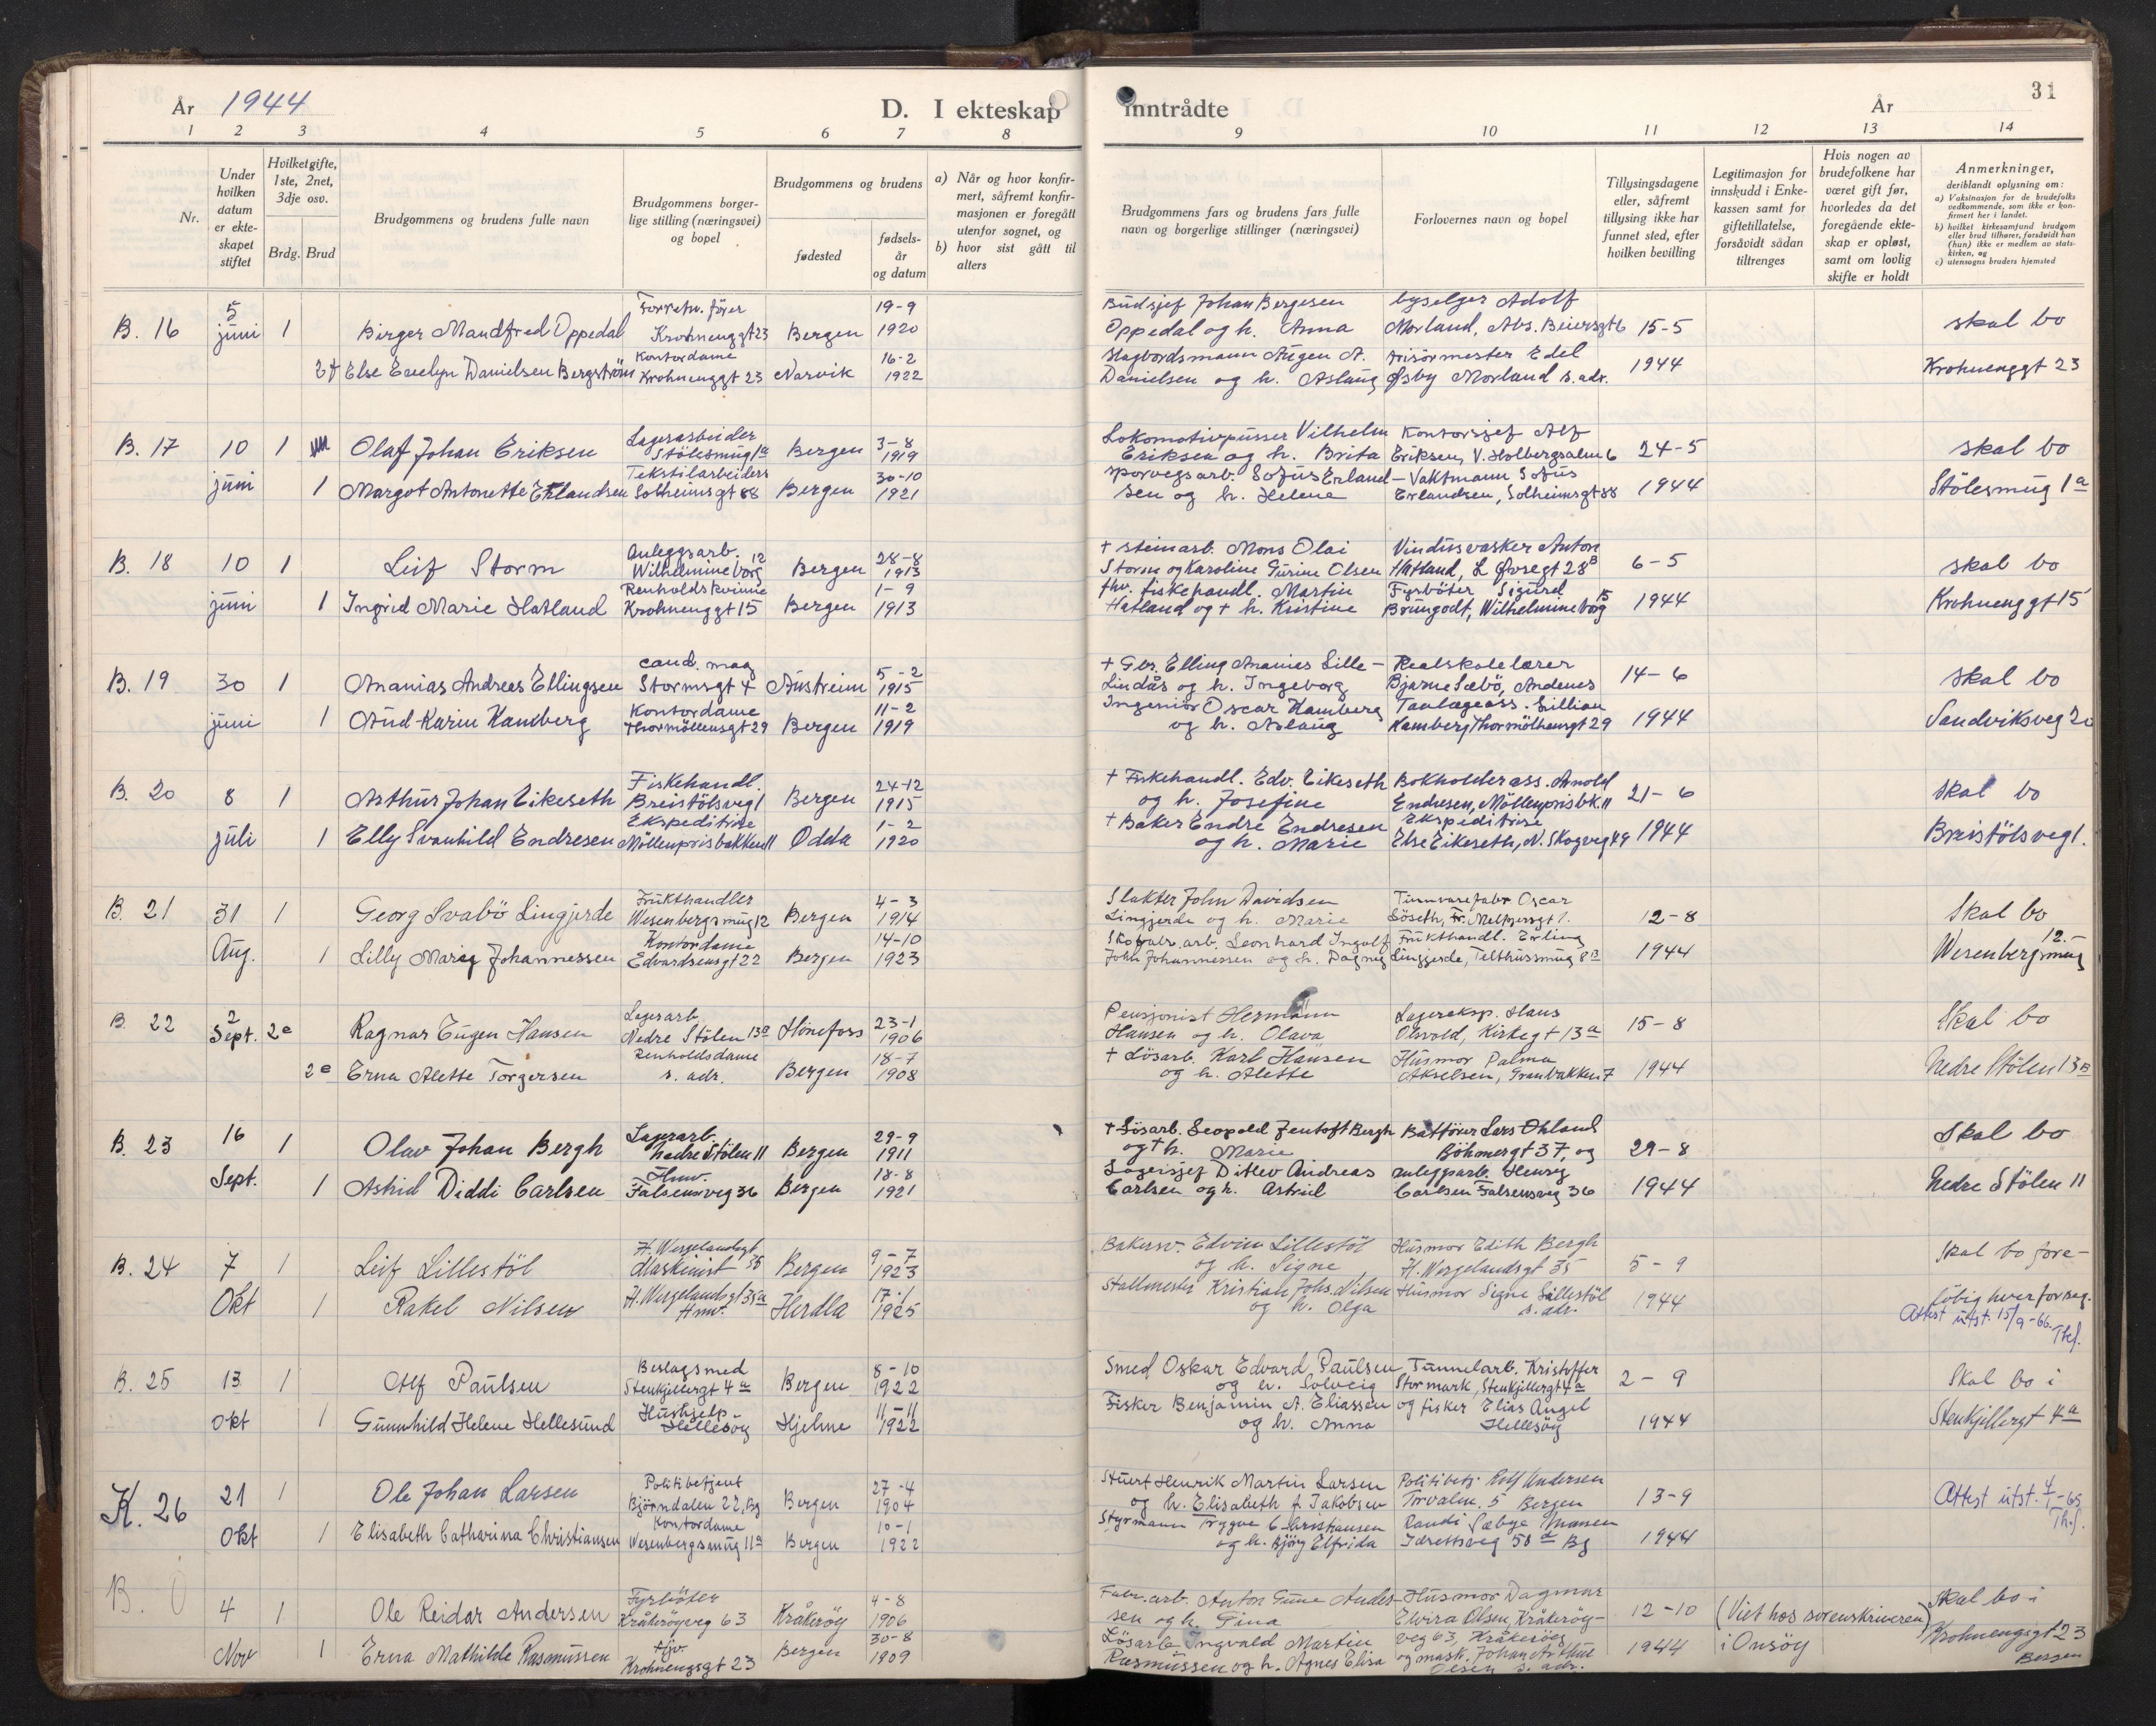 År 1944
D. I ekteskap
inntrådte
År
31
1 2 3 4 5 6 7 8 9 10 11 12 13 14
Nr.
Under hvilken datum er ekteskapet stiftet
Hvilket gifte, 1ste, 2net, 3dje osv.
Brdg. Brud
Brudgommens og brudens fulle navn
Brudgommens borgerlige stilling (næringsvei) og bopel
Brudgommens og brudens
fødested
fødselsår og datum
a) Når og hvor konfirmert, såfremt konfirmasjonen er foregått utenfor sognet, og
b) hvor sist gått til alters
Brudgommens fars og brudens fars fulle navn og borgerlige stillinger (næringsvei)
Forlovernes navn og bopel
Tillysingsdagene eller, såfremt tillysing ikke har funnet sted, efter hvilken bevilling
Legitimasjon for innskudd i Enkekassen samt for giftetillatelse, forsåvidt sådan tiltrenges
Hvis nogen av brudefolkene har været gift før, hvorledes da det foregående ekteskap er opløst, samt om lovlig skifte er holdt
Anmerkninger, deriblandt oplysning om:
a) Vaksinasjon for de brudefolks vedkommende, som ikke er konfirmert her i landet.
b) hvilket kirkesamfund brudgom eller brud tilhører, forsåvidt han (hun) ikke er medlem av statskirken, og
c) utensogns bruders hjemsted
B. 16 5 juni 1 Birger Mandfred Oppedal Krohnenggt 23 Bergen 19-9 1920
Else Evelyn Danielsen Bergström Kontordame Krohnenggt 23 Narvik 16-2 1922
Johan Bergesen Oppedal og h. Anna
Danielsen og h. Aslaug
byselger Adolf Morland, Abs. Beiersgt 6
Frisörmester Edel Øsby Morland s. adr.
15-5 1944
skal bo Krohnenggt 23
B. 17 10 juni 1 Olaf Johan Eriksen Lagerarbeider Stölesmug 1a Bergen 3-8 1919
1 Margot Antonette Erlandsen Tekstilarbeiders Solheimsgt 88 Bergen 30-10 1921
Lokomotivpusser Vilhelm Eriksen og h. Brita
Sporvegsarb. Sofus Erlandsen og h. Helene
Kontorsjef Alf Eriksen, V. Holbergsalm 6
Vaktmann Sofus Erlandsen, Solheimsgt 88
24-5 1944
skal bo Stölesmug 1a
B. 18 10 juni 1 Leif Storm Anleggsarb. Wilhelmineborg 12 Bergen 28-8 1913
1 Ingrid Marie Hatland Renholdskvinne Krohnenggt 15 Bergen 1-9 1913
+ steinarb. Mons Olai Storm og Karoline Gurine Olsen
fhv. fiskehandl. Martin Hatland og + h. Kristine
Vindusvasker Anton Hatland, L. Øvregt 28B
Fyrböter Sigurd Brungodt, Wilhelmineborg 15
6-5 1944
skal bo Krohnenggt 15
B. 19 30 juni 1 Ananias Andreas Ellingsen cand. mag Stormsgt 4 Austreim 5-2 1915
1 Aud-Karin Kamberg Kontordame Thormöllensgt 29 Bergen 11-2 1919
+ Gbr. Elling Ananias Lille-Lindås og h. Ingeborg
Ingeniör Oscar Kamberg og h. Aslaug
Realskolelærer Bjarne Sæbö, Andenes
Tanlægeass. Lillian Kamberg, Thormöllensgt 29
14-6 1944
skal bo Sandviksveg 20
B. 20 8 juli 1 Arthur Johan Eikeseth Fiskehandl. Breistölsveg 1 Bergen 24-12 1915
1 Elly Svanhild Endresen Ekspeditrise Möllenprisbakken 11 Odda 1-2 1920
+ Fiskehandl. Edv. Eikeseth og h. Josefine
+ Baker Endre Endresen og h. Marie
Bokholderass. Arnold Endresen, Möllenprisbk. 11
Ekspeditrise Else Eikeseth, N. Skogveg 49
21-6 1944
skal bo Breistölsveg 1.
B. 21 31 Aug. 1 Georg Svabö Lingjerde Frukthandler Wesenbergsmug 12 Bergen 4-3 1914
1 Lilly Marie Johannessen Kontordame Edvardsensgt 22 Bergen 14-10 1923
Slakter John Davidsen Lingjerde og h. Marie
Skofabr. arb. Leonhard Ingolf John Johannessen og h. Dagny
Tunnvarefabr Oscar Söseth, Fr. Meltzersgt 1.
Frukthandl. Erling Lingjerde, Telthussmug 8B
12-8 1944
Skal bo Wesenbergsmug 12.-
B. 22 2 Sept. 2e Ragnar Eugen Hansen Lagerarb. Nedre Stölen 13a Hönefoss 23-1 1906
2e Erna Alette Torgersen Renholdsdame s. adr. Bergen 18-7 1908
Pensjonist Hermann Hansen og h. Olava
+ Lösarb. Karl Hansen og h. Alette
Lagereksp. Hans Olsvold, Kirkegt 13a
Husmor Palma Akselsen, Granbakken 7
15-8 1944
Skal bo Nedre Stölen 13B
B. 23 16 Sept. 1 Olav Johan Bergh Lagerarb. Nedre Stölen 11 Bergen 29-9 1911
1 Astrid Diddi Carlsen Hmv. Falsensveg 36 Bergen 18-8 1921
+ Lösarb. Leopold Jentoft Bergh og + h. Marie
Lagersjef Ditlev Andreas Carlsen og h. Astrid
Båtförer Lars Ohland Böhmergt 37, og
anleggsarb. Henry Carlsen Falsensveg 36
29-8 1944
Skal bo Nedre Stölen 11
B. 24 7 Okt 1 Leif Lillestöl H. Wergelandsgt 35 Maskinist Bergen 9-7 1923
1 Rakel Nilsen H. Wergelandsgt 35a Hmv. Herdla 17-1 1925
Bakersv. Edvin Lillestöl og h. Signe
Stallmester Kristian Johs. Nilsen og h. Olga
Husmor Edith Bergh H. Wergelandsgt 35
Husmor Signe Lillestöl s. adr.
5-9 1944
Skal bo foreløbig hver for seg.
Attest utst. 15/9-66. Thf.
B. 25 13 Okt 1 Alf Paulsen Beslagsmed Stenkjellergt 4a Bergen 8-10 1922
1 Gunnhild Helene Hellesund Hushjelp Hellesöy Hjelme 11-11 1922
Smed Oskar Edvard Paulsen og h. Solveig
Fisker Benjamin A. Eliassen og h. Anna
Tunnelarb. Kristoffer Stormark, Stenkjellergt 4a
og fisker Elias Angel Hellesöy
2-9 1944
Skal bo i Stenkjellergt 4a
K. 26 21 Okt 1 Ole Johan Larsen Politibetjent Björndalen 22, Bg Bergen 27-4 1904
1 Elisabeth Catharina Christiansen Kontordame Wesenbergsmug 11a Bergen 10-1 1922
Stuert Henrik Martin Larsen og h. Elisabeth f. Jakobsen
Styrmann Trygve Christiansen og h. Bjørg Elfrida
Politibetj. Rolf Andersen Torvalm. 5 Bergen
Randi Sæbye Monsen Idrettsveg 58d Bg
13-9 1944
Attest utst. Thf.
B. 0 4 Nov 1 Ole Reidar Andersen Fyrböter Kråkeröyveg 63 Kråkeröy 4-8 1906
1 Erna Mathilde Rasmussen Krohnengsgt 23 Bergen 30-8 1909
Fabr. arb. Anton Gune Andersen og h. Tina
Lösarb. Ingvald Martin Rasmussen og h. Agnes Elisa
Husmor Dagmar Elvira Olsen, Kråkeröyveg 63, Kråkeröy
og mask. Johan Arthur Olsen s. adr.
12-10 1944
(Viet hos sorenskriveren) i Onsöy
Skal bo i Krohnengsgt 23 Bergen